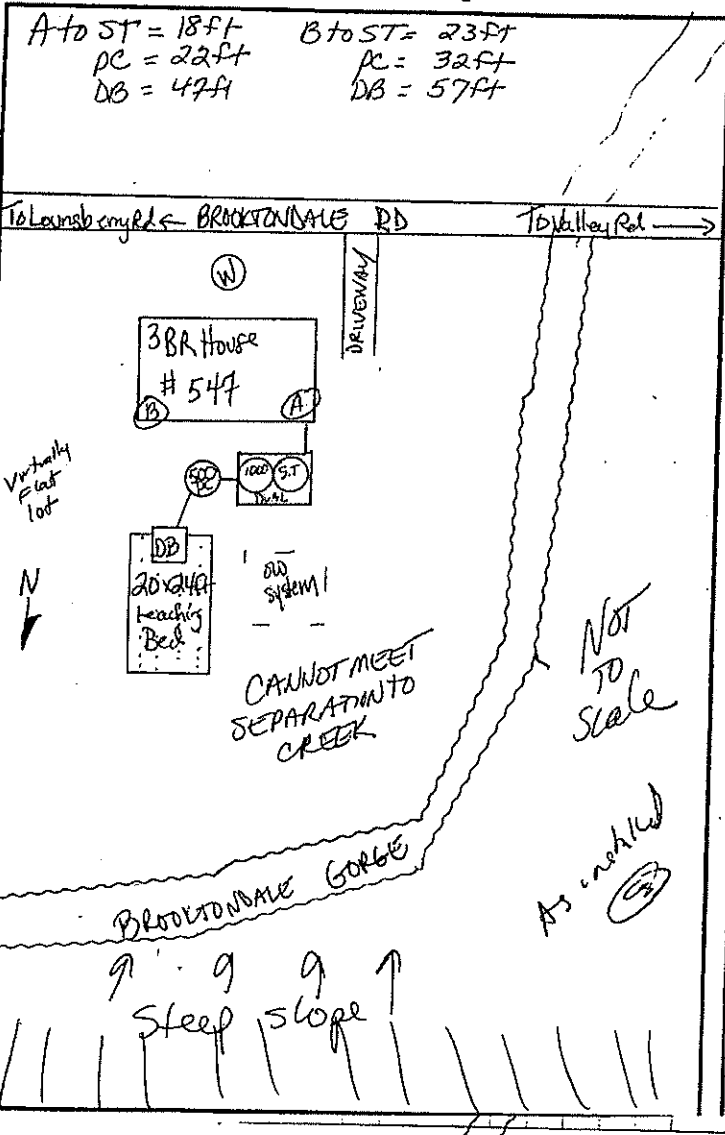 A to ST = 18ft B to ST = 23ft
PC = 22ft PC = 32ft
DB = 47ft DB = 57ft
To Lounsberry Rd ← BROOKTONDALE RD To Valley Rd →
W
DRIVEWAY
3 BR House
# 547
B A
Virtually
Flat
lot
500
PC
1000 S.T
Dual
DB
20x24ft
Leaching
Bed
old
system
N
CANNOT MEET
SEPARATION TO
CREEK
NOT
TO
Scale
BROOKTONDALE GORGE
As installed
Steep slope